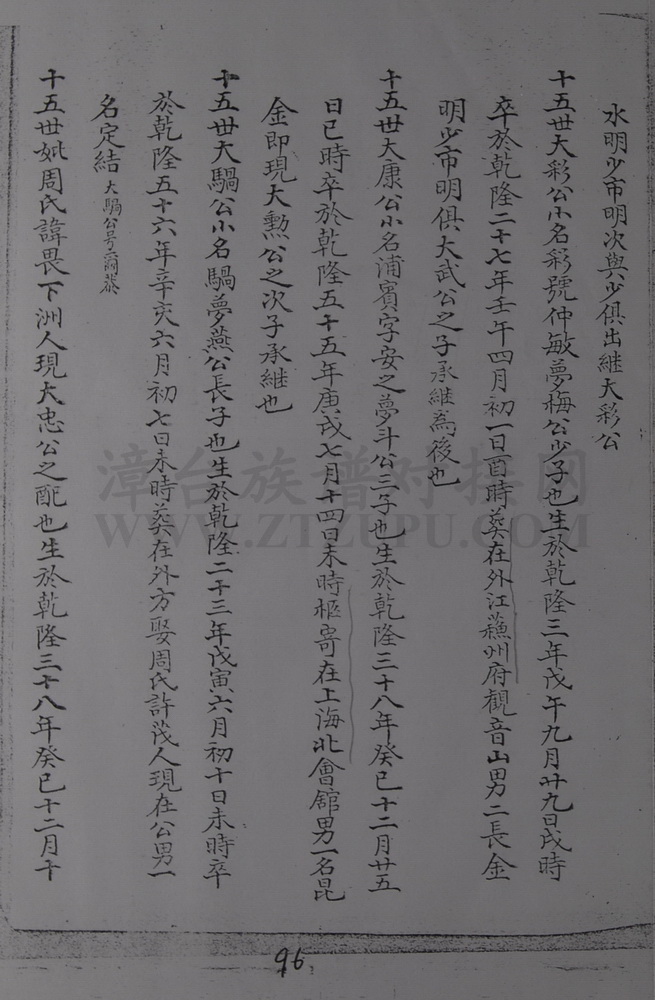 水明少市明次與少俱出継大彩公
十五世大彩公小名彩號仲敏夢梅公少子也生於乾隆三年戊午九月廿九日戌時
卒於乾隆二十七年壬午四月初一日酉時葬在外江蘓州府觀音山男二長金
明少市明俱大武公之子承継為後也
十五世大康公小名浦賓字安之夢斗公三子也生於乾隆三十八年癸巳十二月廿五
日巳時卒於乾隆五十五年庚戌七月十四日未時柩寄在上海北會舘男一名昆
金即現大勲公之次子承継也
十五世大騧公小名騧夢燕公長子也生於乾隆二十三年戊寅六月初十日未時卒
於乾隆五十六年辛亥六月初七日未時葬在外方娶周氏許茂人現在公男一
名定結大騧公号
十五世妣周氏諱畏下洲人現大忠公之配也生於乾隆三十八年癸巳十二月十
漳台族谱对接网
WWW.ZTZUPU.COM
96